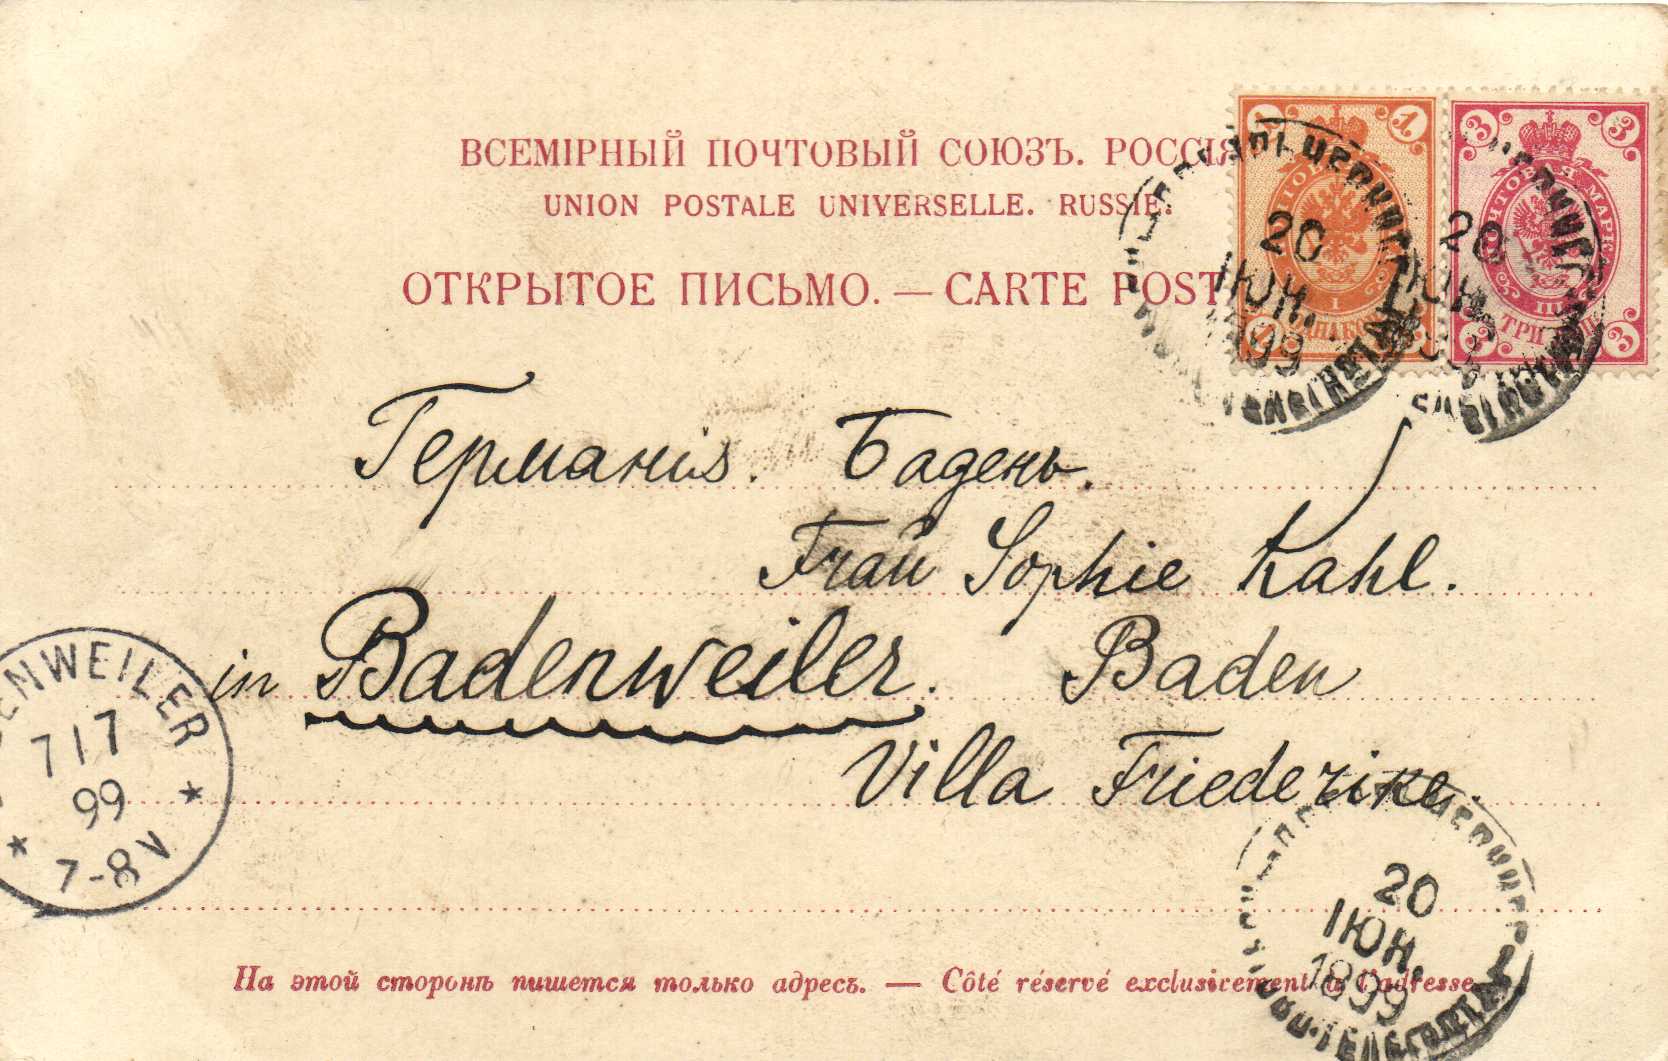 ВСЕМІРНЫЙ ПОЧТОВЫЙ СОЮЗЪ. РОССІЯ
UNION POSTALE UNIVERSELLE. RUSSIE.
ОТКРЫТОЕ ПИСЬМО. — CARTE POST
1 1
3 3
20
ІЮН.
1899
20
ІЮН.
Германія. Баденъ.
Frau Sophie Kahl.
in Badenweiler. Baden
Villa Friederike.
ENWEILER
7 17
99
7-8 V
20
ІЮН.
1899
На этой сторонѣ пишется только адресъ. — Côté réservé exclusivement à l'adresse.